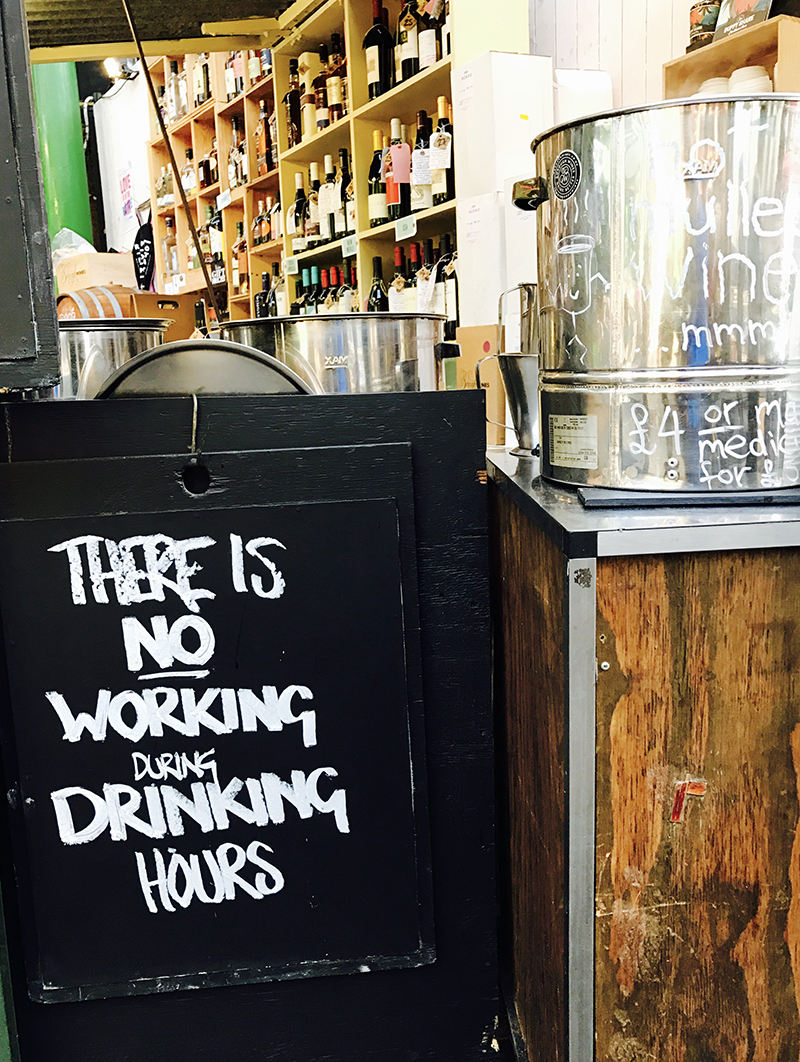 THERE IS
NO
WORKING
DURING
DRINKING
HOURS
MAX
MAX
HOT
Mulle
Wine
...mmm
£4 or m
medic
for